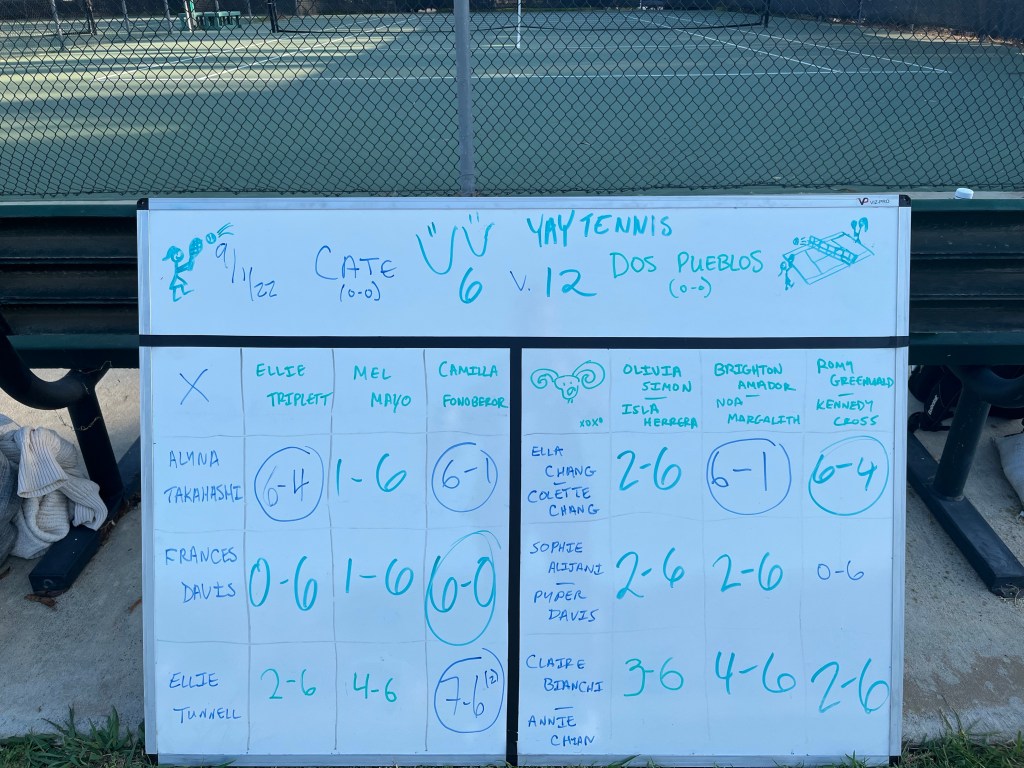 VIZ-PRO
YAY TENNIS
9/1/22 CATE 6 V. 12 DOS PUEBLOS
(0-0) (0-0)
X
ELLIE
TRIPLETT
MEL
MAYO
CAMILLA
FONOBEROR
ALYNA
TAKAHASHI
6-4
1-6
6-1
FRANCES
DAVIS
0-6
1-6
6-0
ELLIE
TUNNELL
2-6
4-6
7-6(2)
XOXO
OLIVIA
SIMON
ISLA
HERRERA
BRIGHTON
AMADOR
NOA
MARGALITH
ROMY
GREENWALD
KENNEDY
CROSS
ELLA
CHANG
COLETTE
CHANG
2-6
6-1
6-4
SOPHIE
ALIJANI
PYPER
DAVIS
2-6
2-6
0-6
CLAIRE
BIANCHI
ANNIE
CHIAN
3-6
4-6
2-6